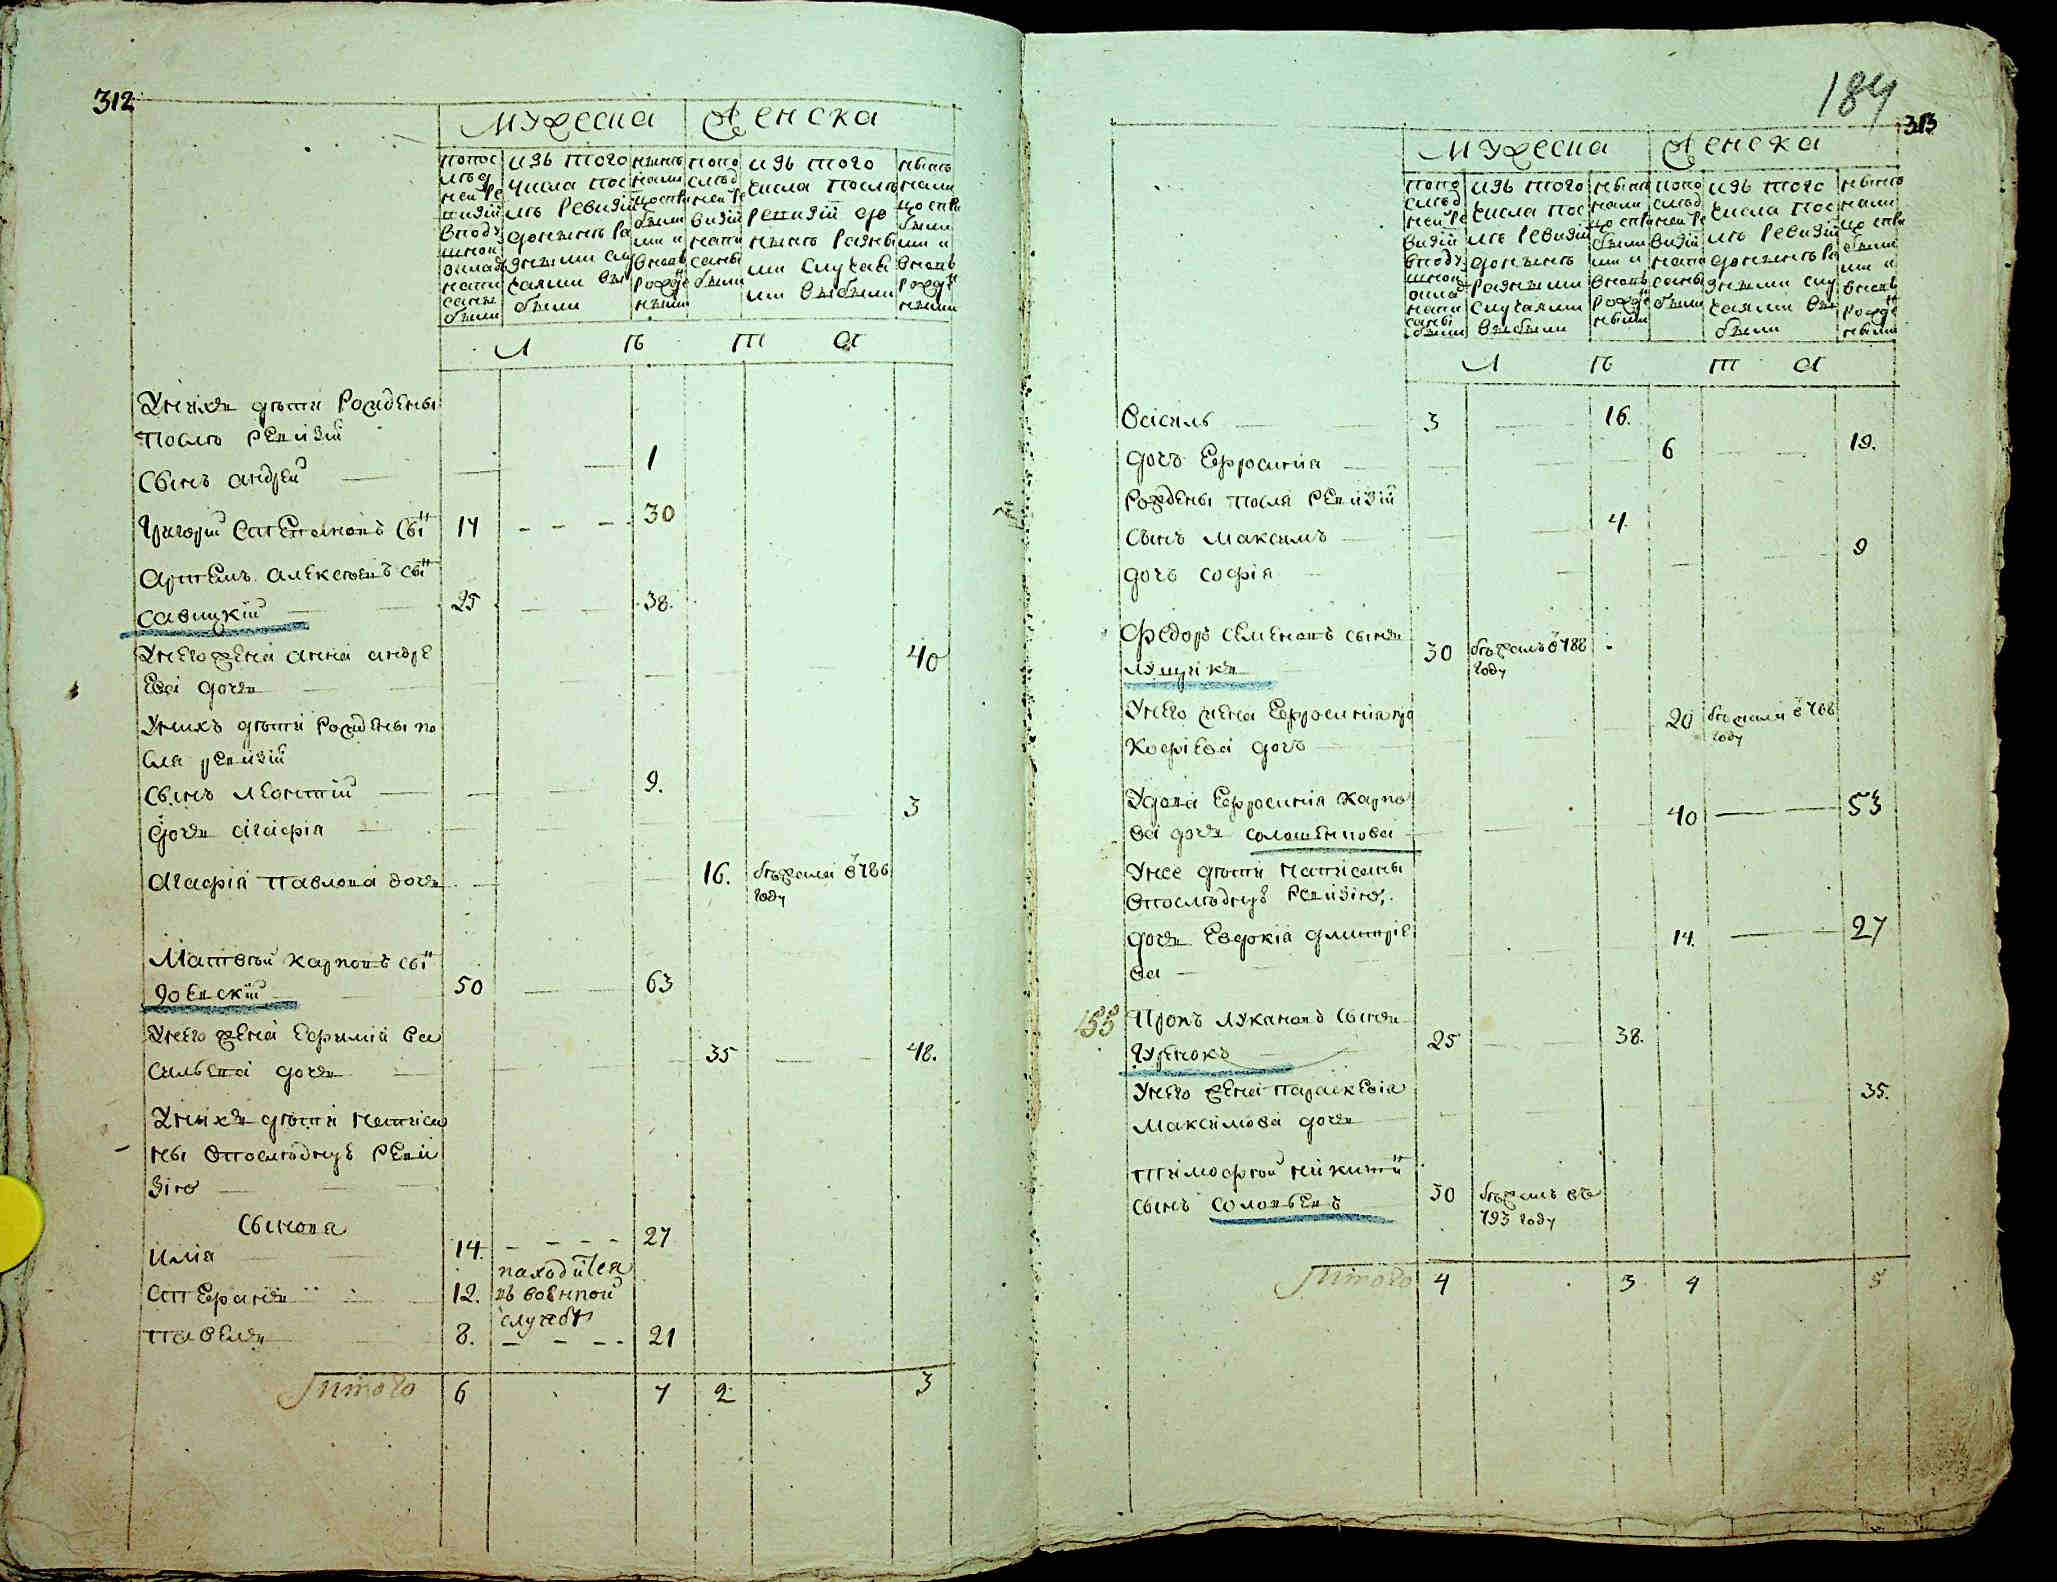 312
Мужеска Женска
попос
лѣд
ней ре
визіи
вподу
шном
окладѣ
напи
саны
были
изъ того
числа пос
лѣ ревизіи
донынѣ ра
зными слу
чаями вы
были
нынѣ
нали
цо спри
были
ми и
вновь
рожде
ными
попо
слѣд
ней ре
визіи
напи
саны
были
изъ того
числа послѣ
ревизіи до
нынѣ разны
ми случая
ми выбыли
нынѣ
нали
цо спри
были
ми и
вновь
рожде
ными
Л ѣ т а
Унихъ дѣти рождены
послѣ ревизіи
Сынъ андрей 1
Григорій Степановъ сынъ 17 30
Артемъ алексѣевъ сынъ
савицкій 25 38.
Унего жена анна андре
ева дочь 40
Унихъ дѣти рождены по
сля ревизіи
Сынъ леонтій 9.
Дочь агафія 3
Агафія павлова дочь 16. бѣжала в 786
году
Матвей карповъ сынъ
доевскій 50 63
Унего жена ефимія ва
сильева дочь 35 48.
Унихъ дѣти написа
ны впослѣдную реви
зію
Сыновя
илія 14. 27
стефанъ 12. находится
въ военной
службѣ
павелъ 8. 21
Итого 6 7 2 3
184
313
Мужеска Женска
попо
слѣд
ней ре
визіи
вподу
шном
оклад
напи
саны
были
изъ того
числа пос
лѣ ревизіи
донынѣ
разными
случаями
выбыли
нынѣ
нали
цо спри
были
ми и
вновь
рожде
ными
попо
слѣд
ней ре
визіи
напи
саны
были
изъ того
числа пос
лѣ ревизіи
донынѣ ра
зными слу
чаями вы
были
нынѣ
нали
цо спри
были
ми и
вновь
рожде
ными
Л ѣ т а
Василь 3 16.
дочь Ефросинія 6 19.
рождены посля ревизіи
Сынъ Максимъ 4.
дочь софія 9
Федоръ семеновъ сынъ
лущикъ 30 бѣжалъ в 788
году
Унего жена Ефросинія про
кофіева дочь 20 бѣжала в 788
году
Удова Ефросинія карпо
ва дочь солошенкова 40 53
Унее дѣти написаны
впослѣднуъ ревизію,
дочь Евдокія дмитріе
ва 14. 27
155 Прокъ лукановъ сынъ
гуренокъ 25 38.
Унего жена параскевія
максимова дочь 35.
тимофей никитинъ
сынъ соловьевъ 30 бѣжалъ въ
793 году
Итого 4 3 4 5